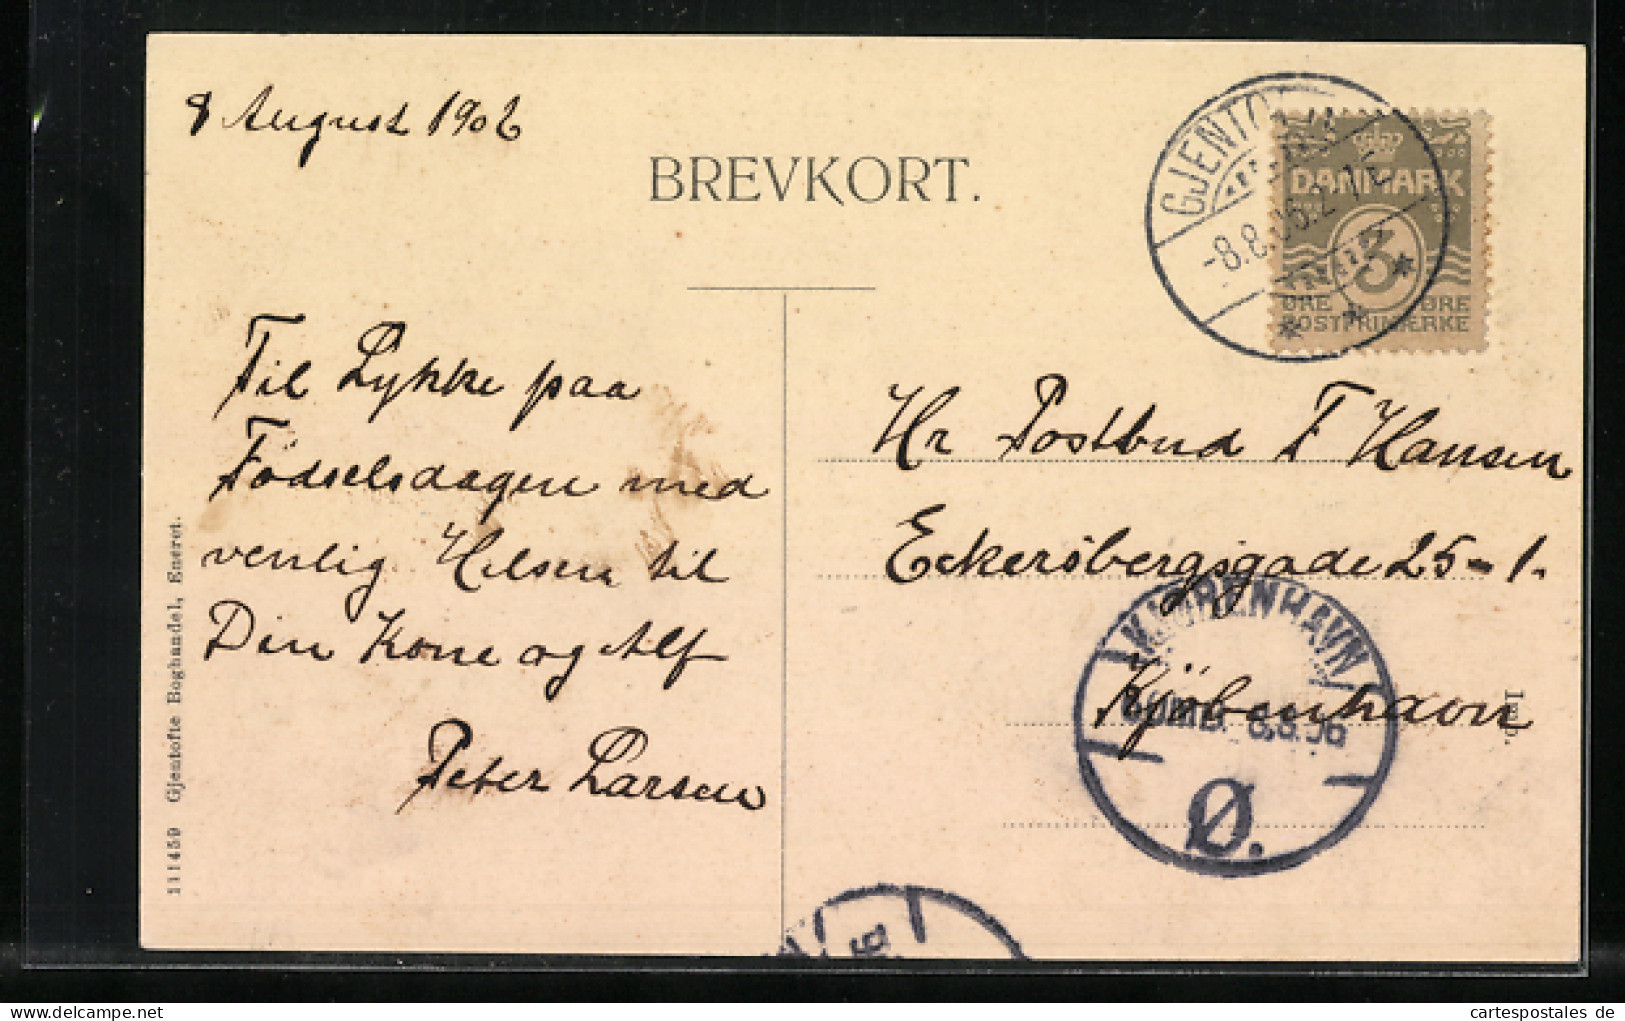 8 August 1906
BREVKORT.
GJENTOFTE
-8.8.06.2
DANMARK
3
ØRE ØRE
POSTFRIMÆRKE
Til Lykke paa
Födselsdagen med
venlig Hilsen til
Din Kone og Alf
Peter Larsen
Hr Postbud F Hansen
Eckersbergsgade 25-1.
Kjöbenhavn
KJØBENHAVN
8.8.06
Ø.
Imp.
111459 Gjentofte Boghandel, Eneret.
cartespostales de